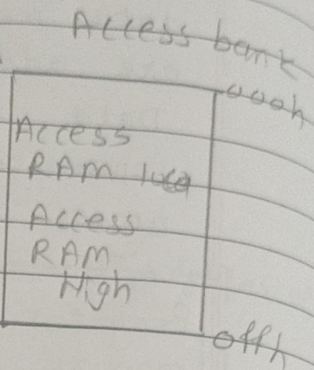 Access bank
000h
Access
RAM low
Access
RAM
High
0ffh